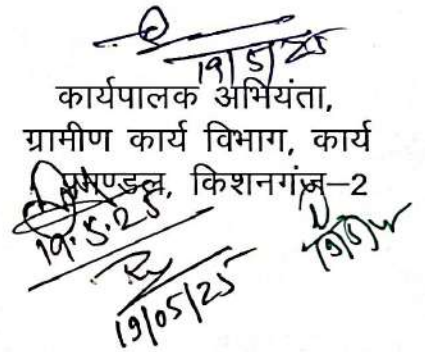 19/5/25
कार्यपालक अभियंता,
ग्रामीण कार्य विभाग, कार्य
प्रमण्डल, किशनगंज–2
19.5.25
19/05/25